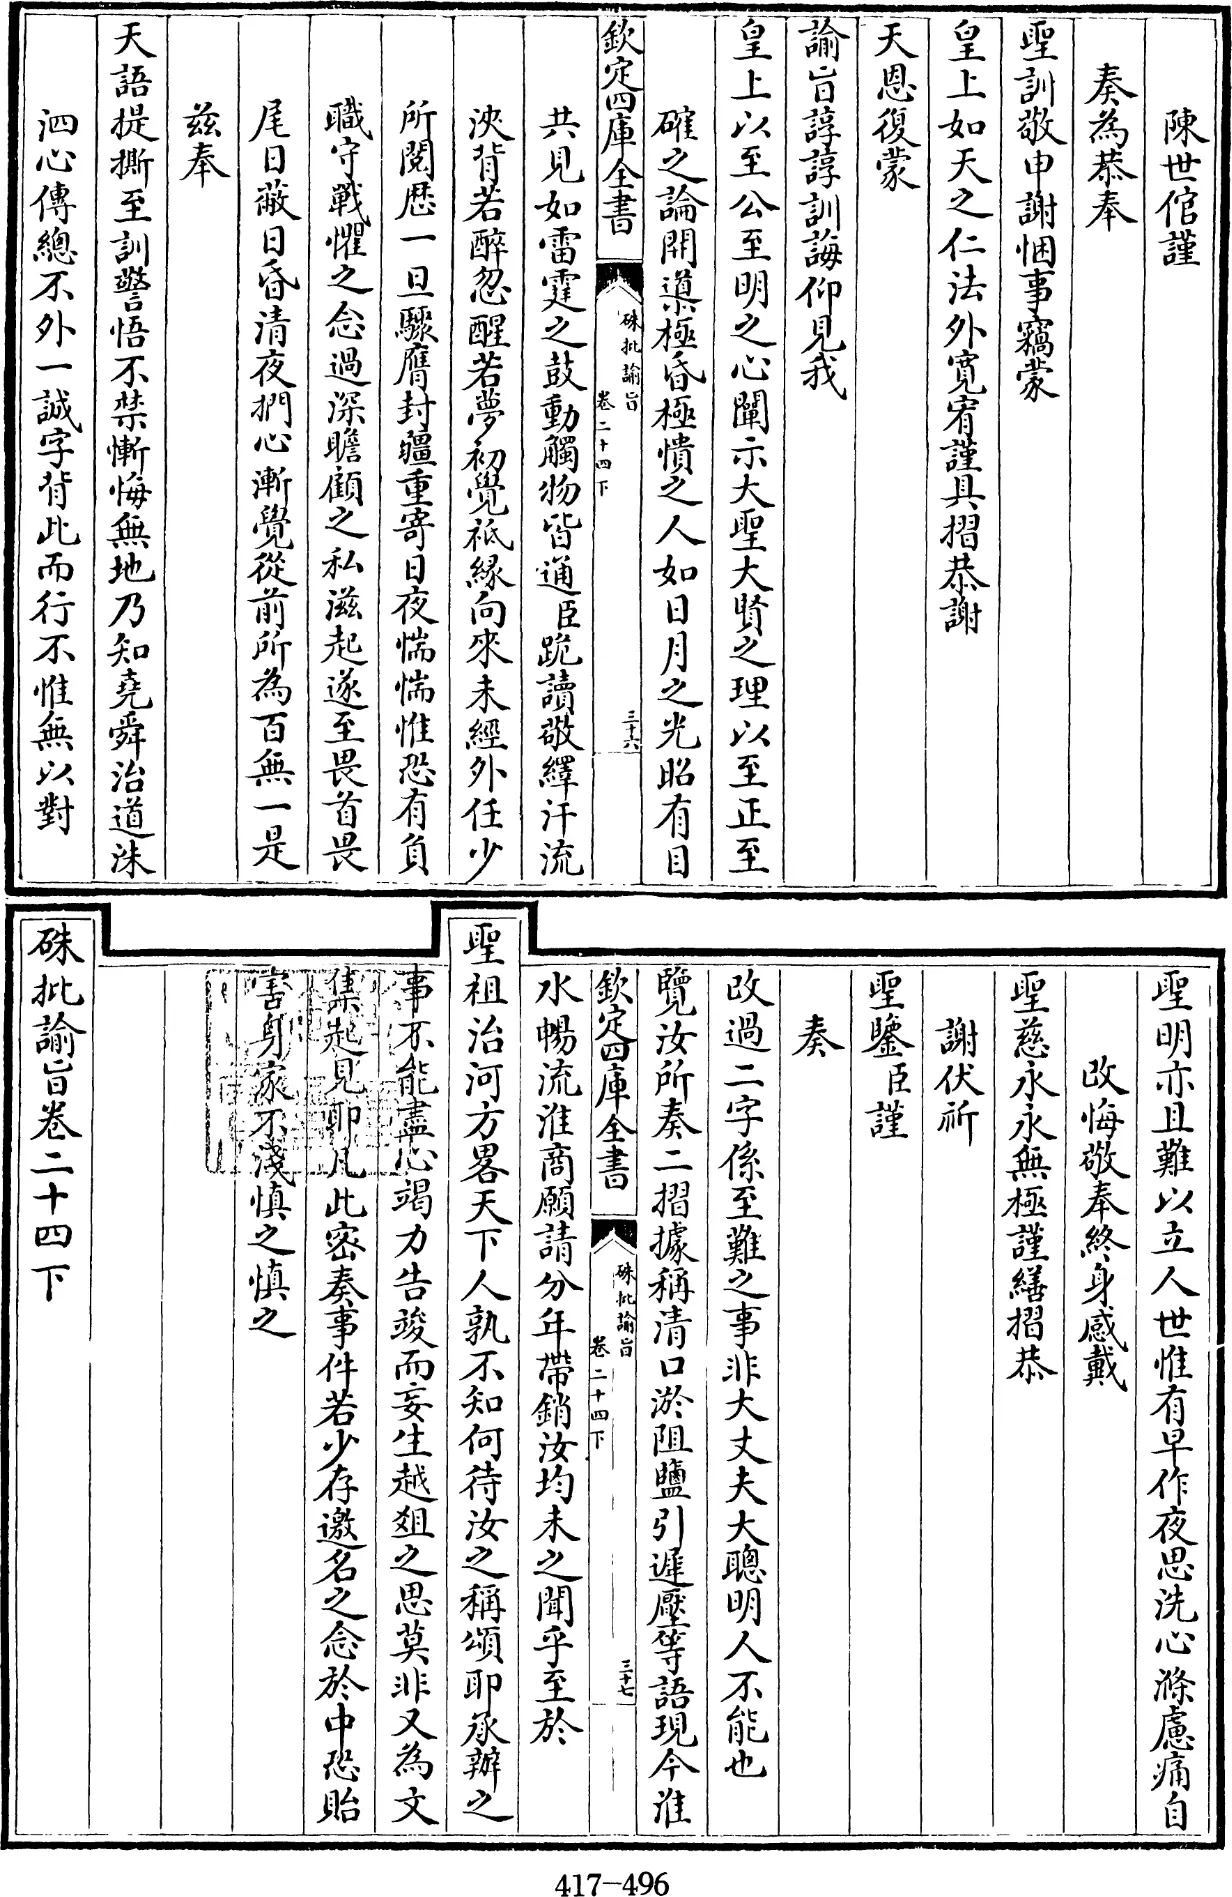 陳世倌謹
奏為恭奉
聖訓敬申謝悃事竊蒙
皇上如天之仁法外寬宥謹具摺恭謝
天恩復蒙
諭旨諄諄訓誨仰見我
皇上以至公至明之心闡示大聖大賢之理以至正至
確之論開導極昏極憒之人如日月之光昭有目
欽定四庫全書
硃批諭旨
卷二十四下
三十六
共見如雷霆之鼓動觸物皆通臣跪讀敬繹汗流
浹背若醉忽醒若夢初覺祗緣向來未經外任少
所閱歷一旦驟膺封疆重寄日夜惴惴惟恐有負
職守戰懼之念過深瞻顧之私滋起遂至畏首畏
尾日蔽日昏清夜捫心漸覺從前所為百無一是
兹奉
天語提撕至訓警悟不禁慚悔無地乃知堯舜治道洙
泗心傳總不外一誠字背此而行不惟無以對
聖明亦且難以立人世惟有早作夜思洗心滌慮痛自
改悔敬奉終身感戴
聖慈永永無極謹繕摺恭
謝伏祈
聖鑒臣謹
奏
改過二字係至難之事非大丈夫大聰明人不能也
覽汝所奏二摺據稱清口淤阻鹽引遲壓等語現今淮
欽定四庫全書
硃批諭旨
卷二十四下
三十七
水暢流淮商願請分年帶銷汝均未之聞乎至於
聖祖治河方畧天下人孰不知何待汝之稱頌耶承辦之
事不能盡心竭力告竣而妄生越俎之思莫非又為文
集起見耶凡此密奏事件若少存邀名之念於中恐貽
害身家不淺慎之慎之
硃批諭旨卷二十四下
417-496